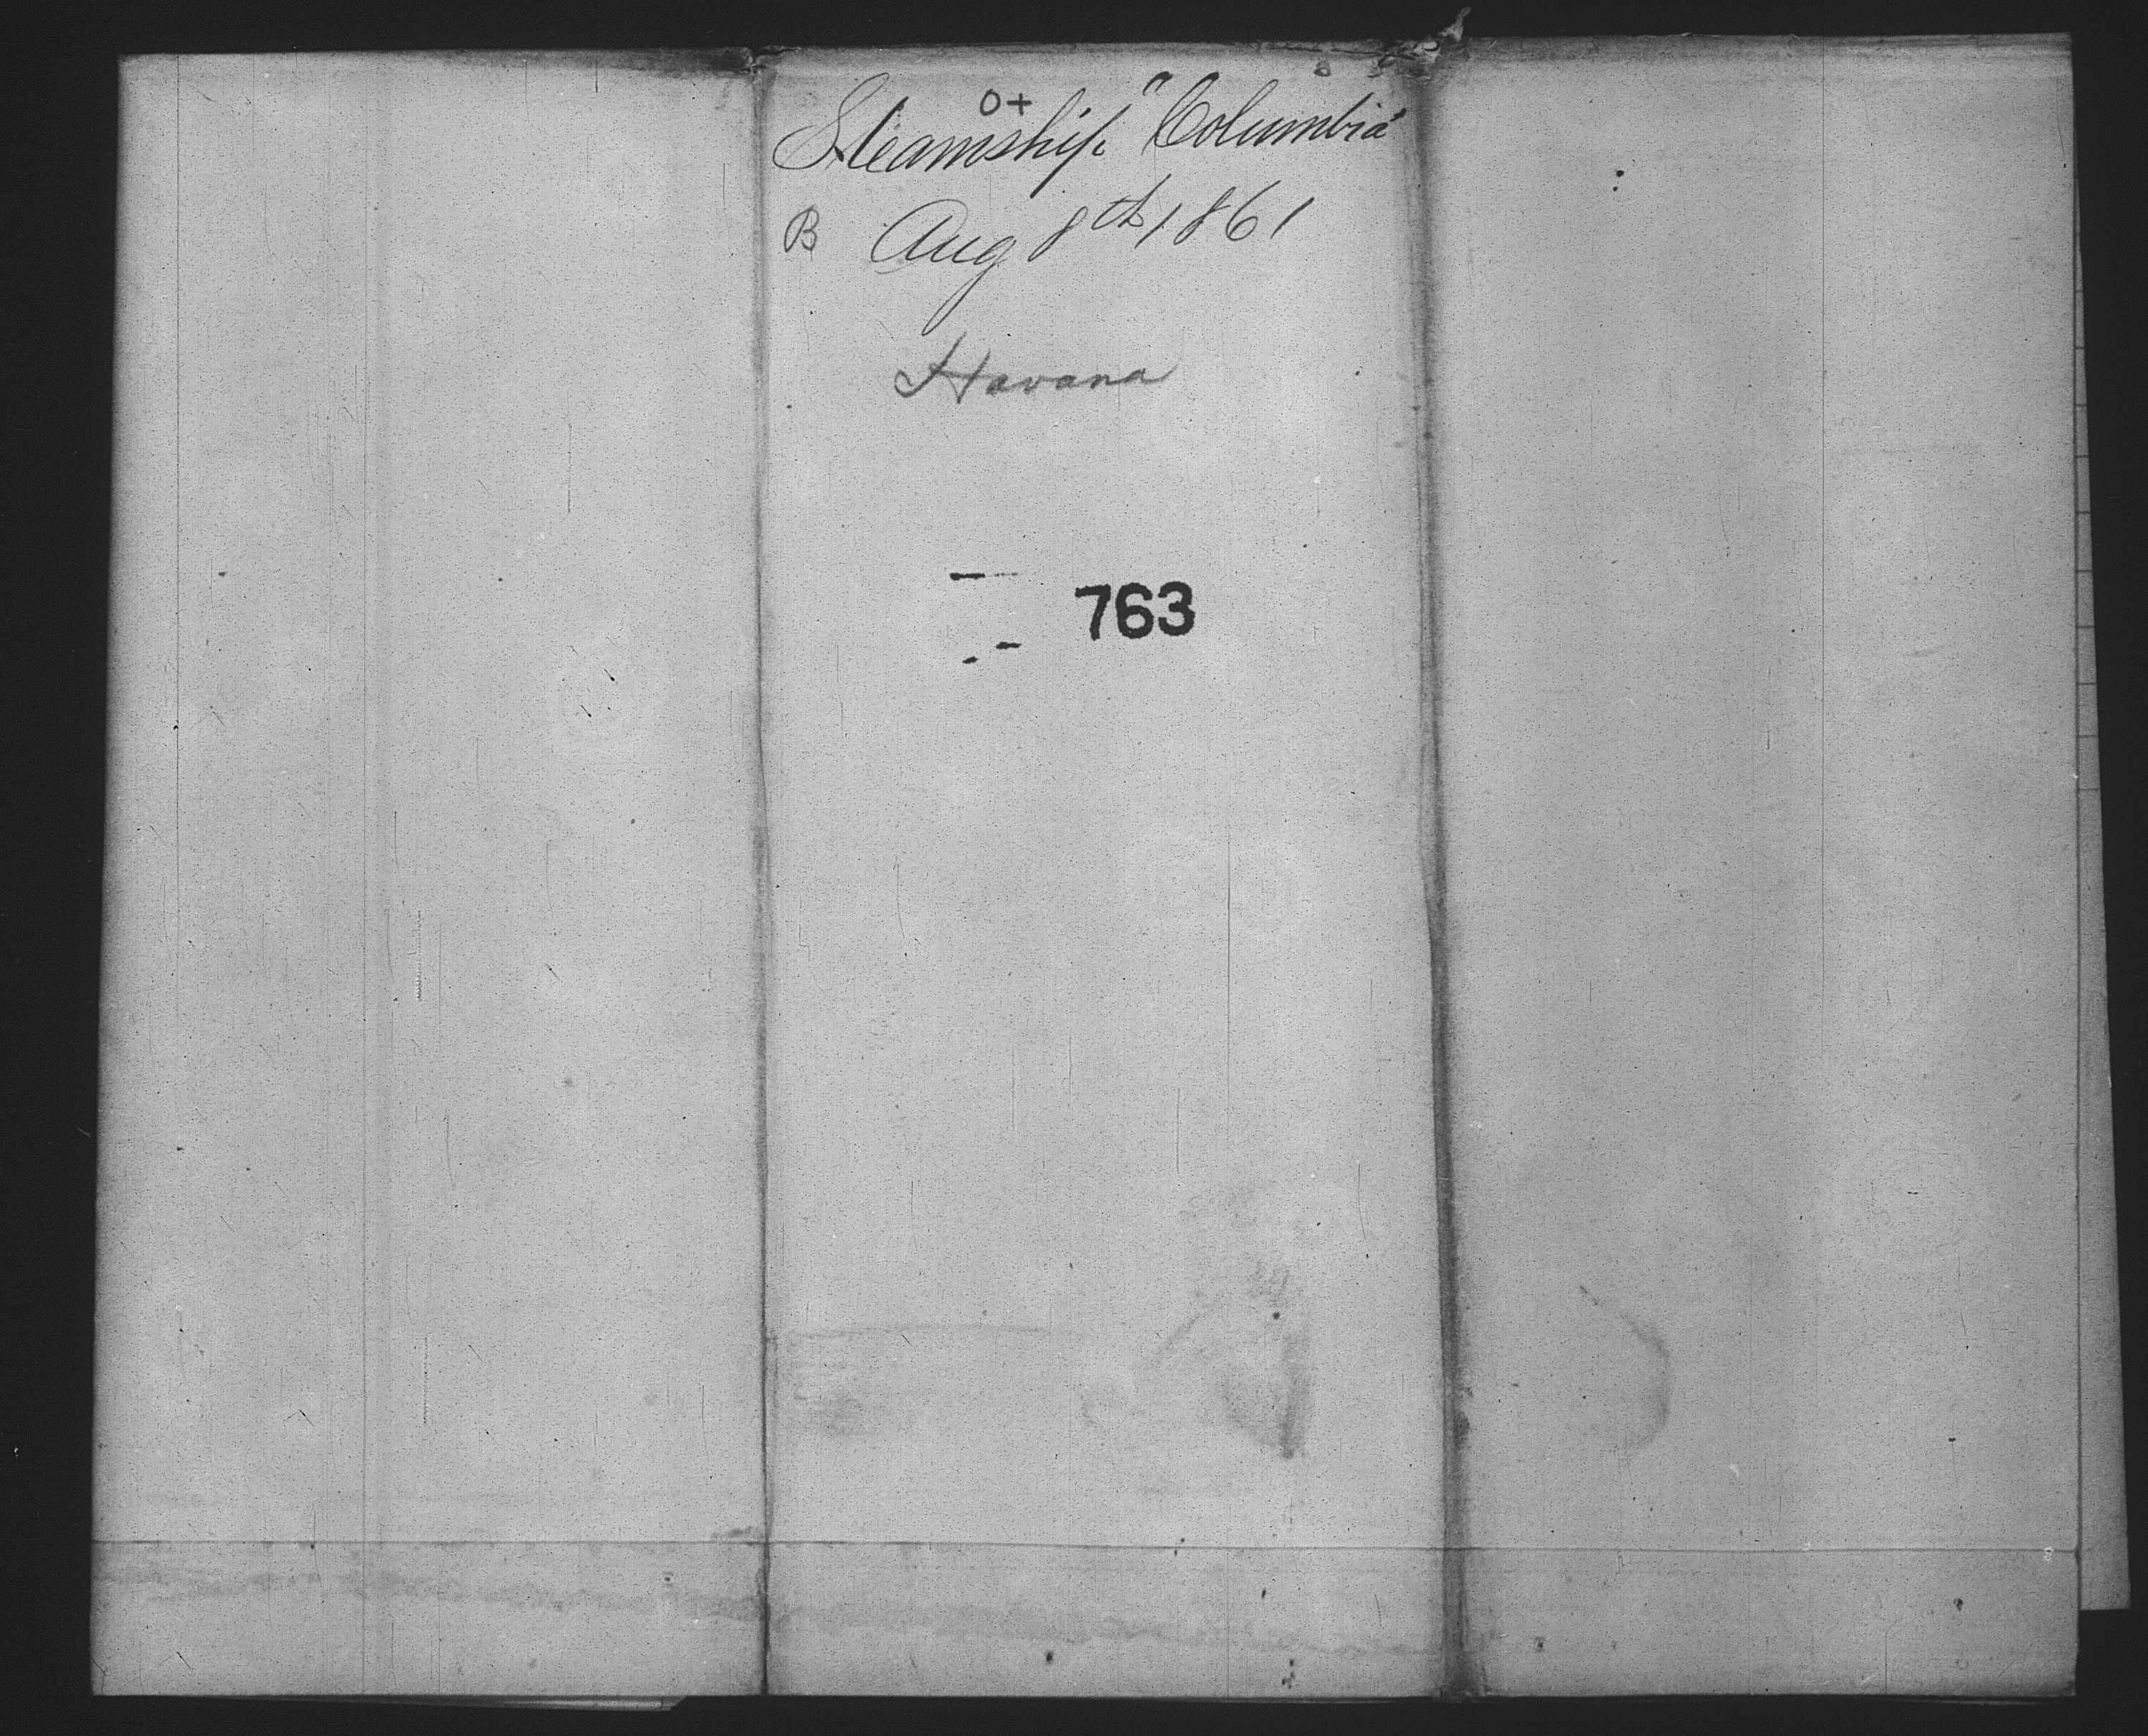 O+
Steamship "Columbia"
B Aug 8th 1861
Havana
763